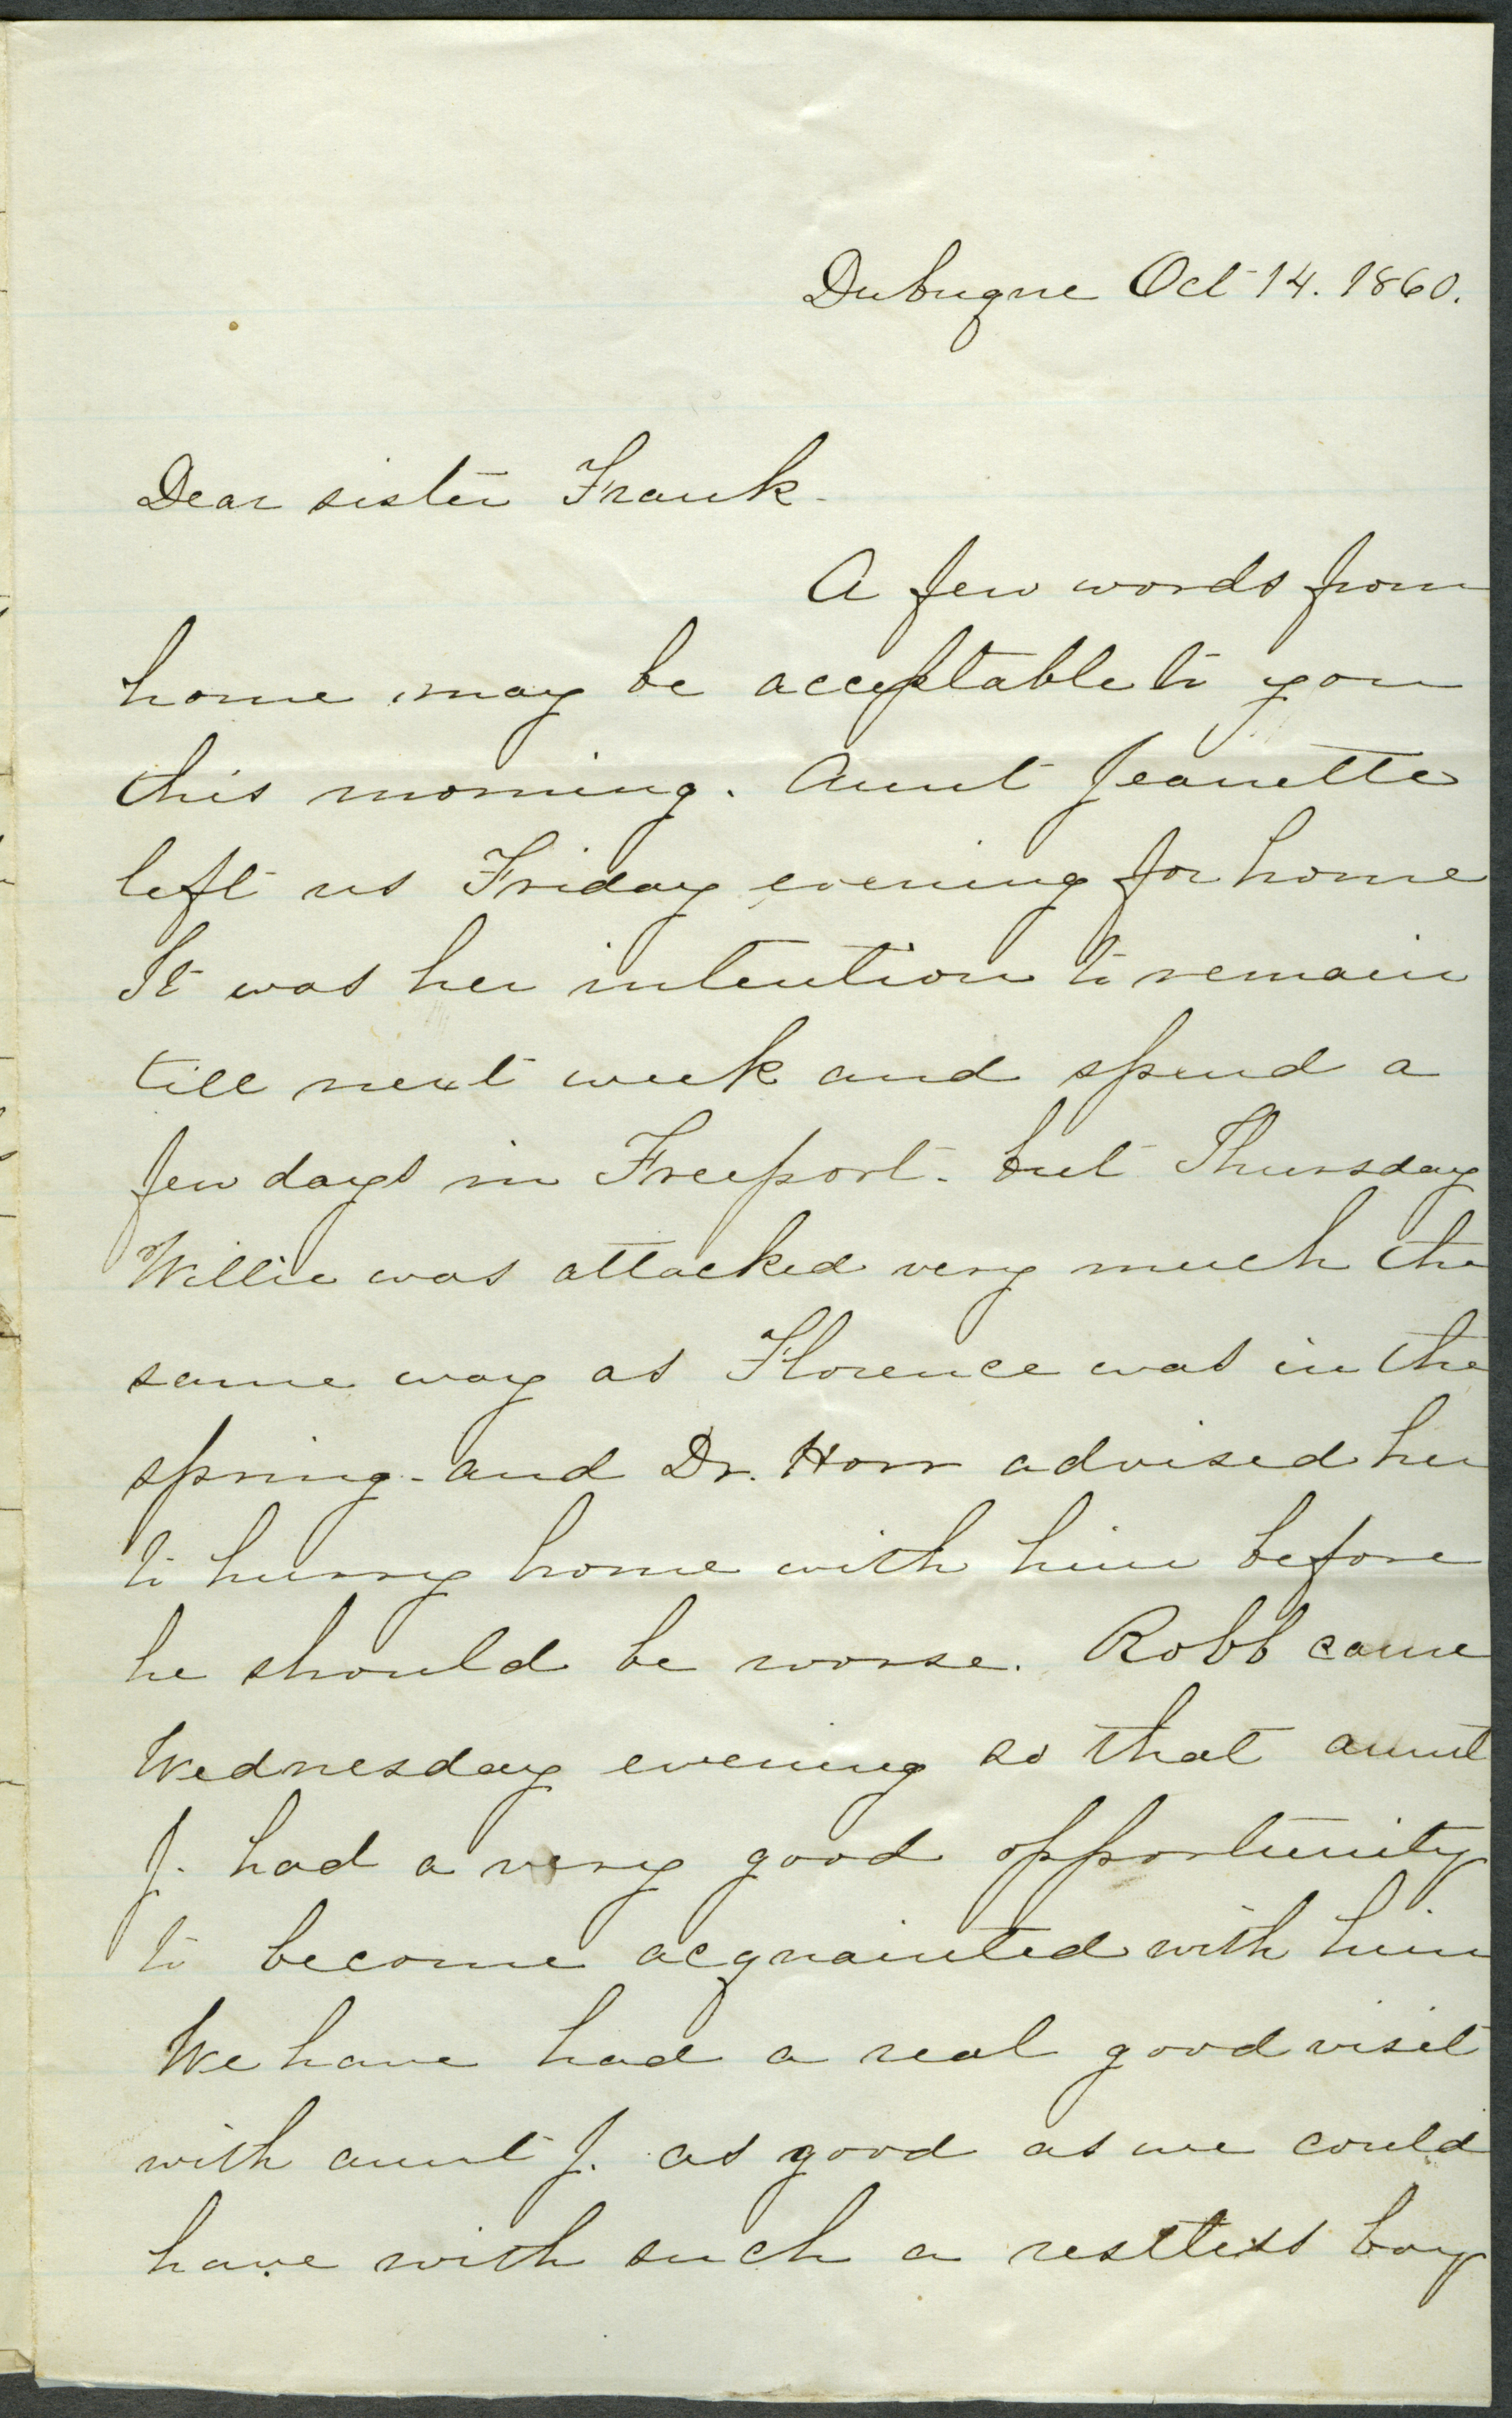 Dubuque Oct 14. 1860.
Dear sister Frank.
A few words from
home may be acceptable to you
this morning. Aunt Jeanette
left us Friday evening for home
It was her intention to remain
till next week and spend a
few days in Freeport. but Thursday
Willie was attacked very much the
same way as Florence was in the
spring - and Dr. Horr advised her
to hurry home with him before
he should be worse. Robb came
Wednesday evening so that aunt
J. had a very good opportunity
to become acquainted with him
We have had a real good visit
with aunt J. as good as we could
have with such a restless boy